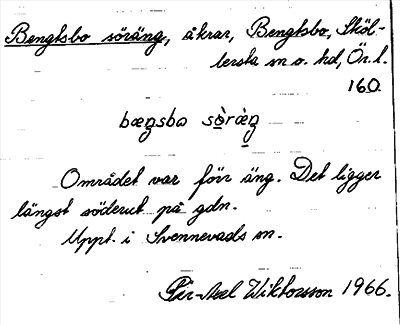 Bengtsbo söräng, åkrar, Bengtsbo, Sköl-
lersta sn o. hd, Ör. l.
160.
bæŋsbo sö̀ræ̀ŋ
Området var förr äng. Det ligger
längst söderut på gdn.
Uppt. i Svennevads sn.
Per-Axel Wiktorsson 1966.